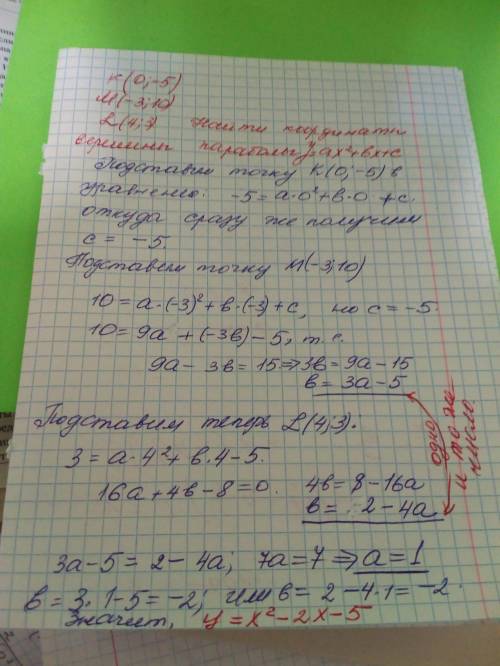 K(0;-5)
M(-3;10)
L(4;3) Найти координаты
вершины параболы y=ax²+bx+c
Подставим точку K(0;-5) в
уравнение: -5=a·0²+b·0+c.
откуда сразу же получим
c= -5.
Подставим точку M(-3;10)
10=a·(-3)²+b·(-3)+c, но c=-5.
10=9a+(-3b)-5, т.е.
9a-3b=15⇒3b=9a-15
b=3a-5
Подставим теперь L(4;3).
3=a·4²+b·4-5.
16a+4b-8=0. 4b=8-16a
b= 2-4a
одно
и то же
число.
3a-5=2-4a; 7a=7⇒a=1
b=3·1-5=-2; или b=2-4·1=-2.
Значит, y=x²-2x-5